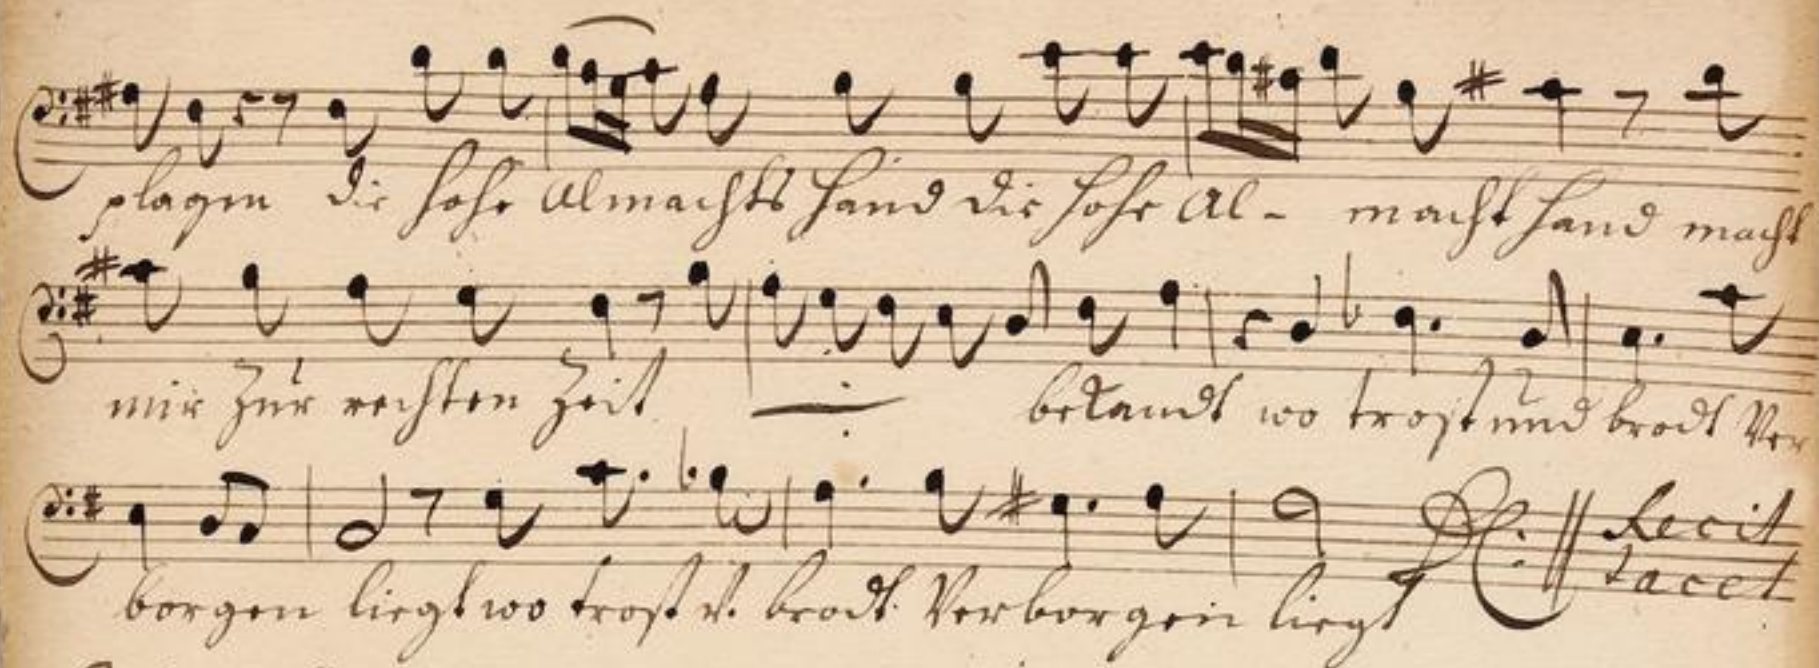 plagen die hohe Allmachts hand die hohe Al- macht hand macht
mir zur rechten Zeit bekandt wo trost und brodt Ver
borgen liegt wo trost v. brodt Verborgen liegt DC: Recit
tacet